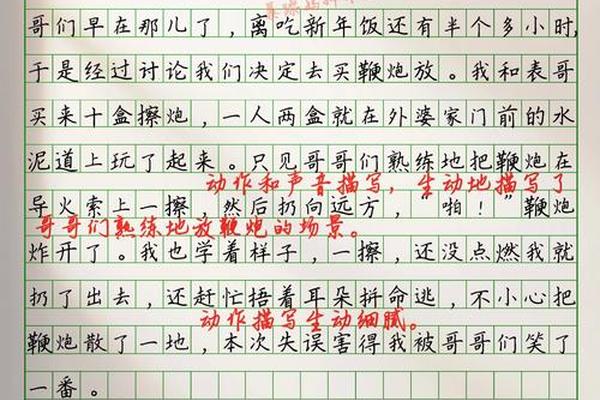 哥们早在那儿了，离吃新年饭还有半个多小时，
于是经过讨论我们决定去买鞭炮放。我和表哥
买来十盒擦炮，一人两盒就在外婆家门前的水
泥道上玩了起来。只见哥哥们熟练地把鞭炮在
动作和声音描写，生动地描写了
导火索上一擦，然后扔向远方，“啪！”鞭炮
哥哥们熟练地放鞭炮的场景。
炸开了。我也学着样子，一擦，还没点燃我就
扔了出去，还赶忙捂着耳朵拼命逃，不小心把
动作描写生动细腻。
鞭炮散了一地，本次失误害得我被哥哥们笑了
一番。